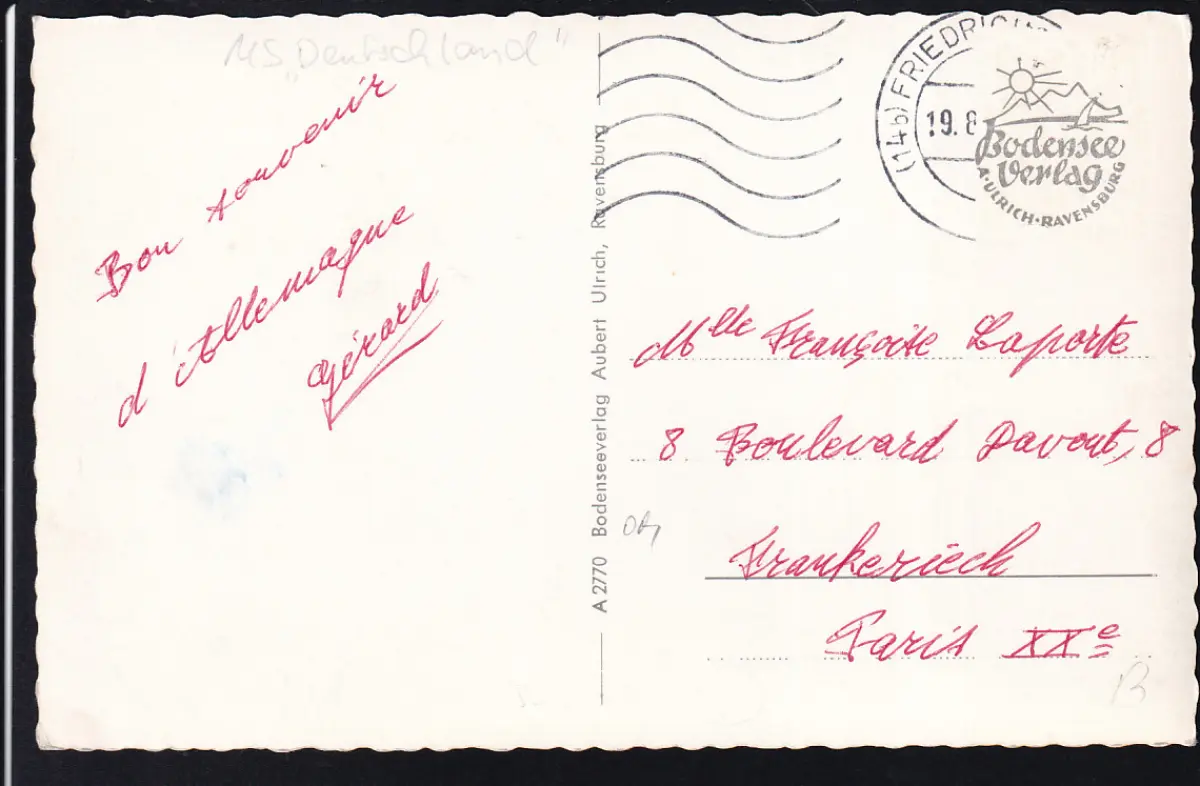 MS „Deutschland"
Bon souvenir
d'Allemagne
Gérard
A 2770 Bodenseeverlag Aubert Ulrich, Ravensburg
(14b) FRIEDRICH
19. 8
Bodensee
Verlag
A·ULRICH·RAVENSBURG
Mlle Françoise Laporte
8 Boulevard Davout, 8
Frankeriech
Paris XXe
B